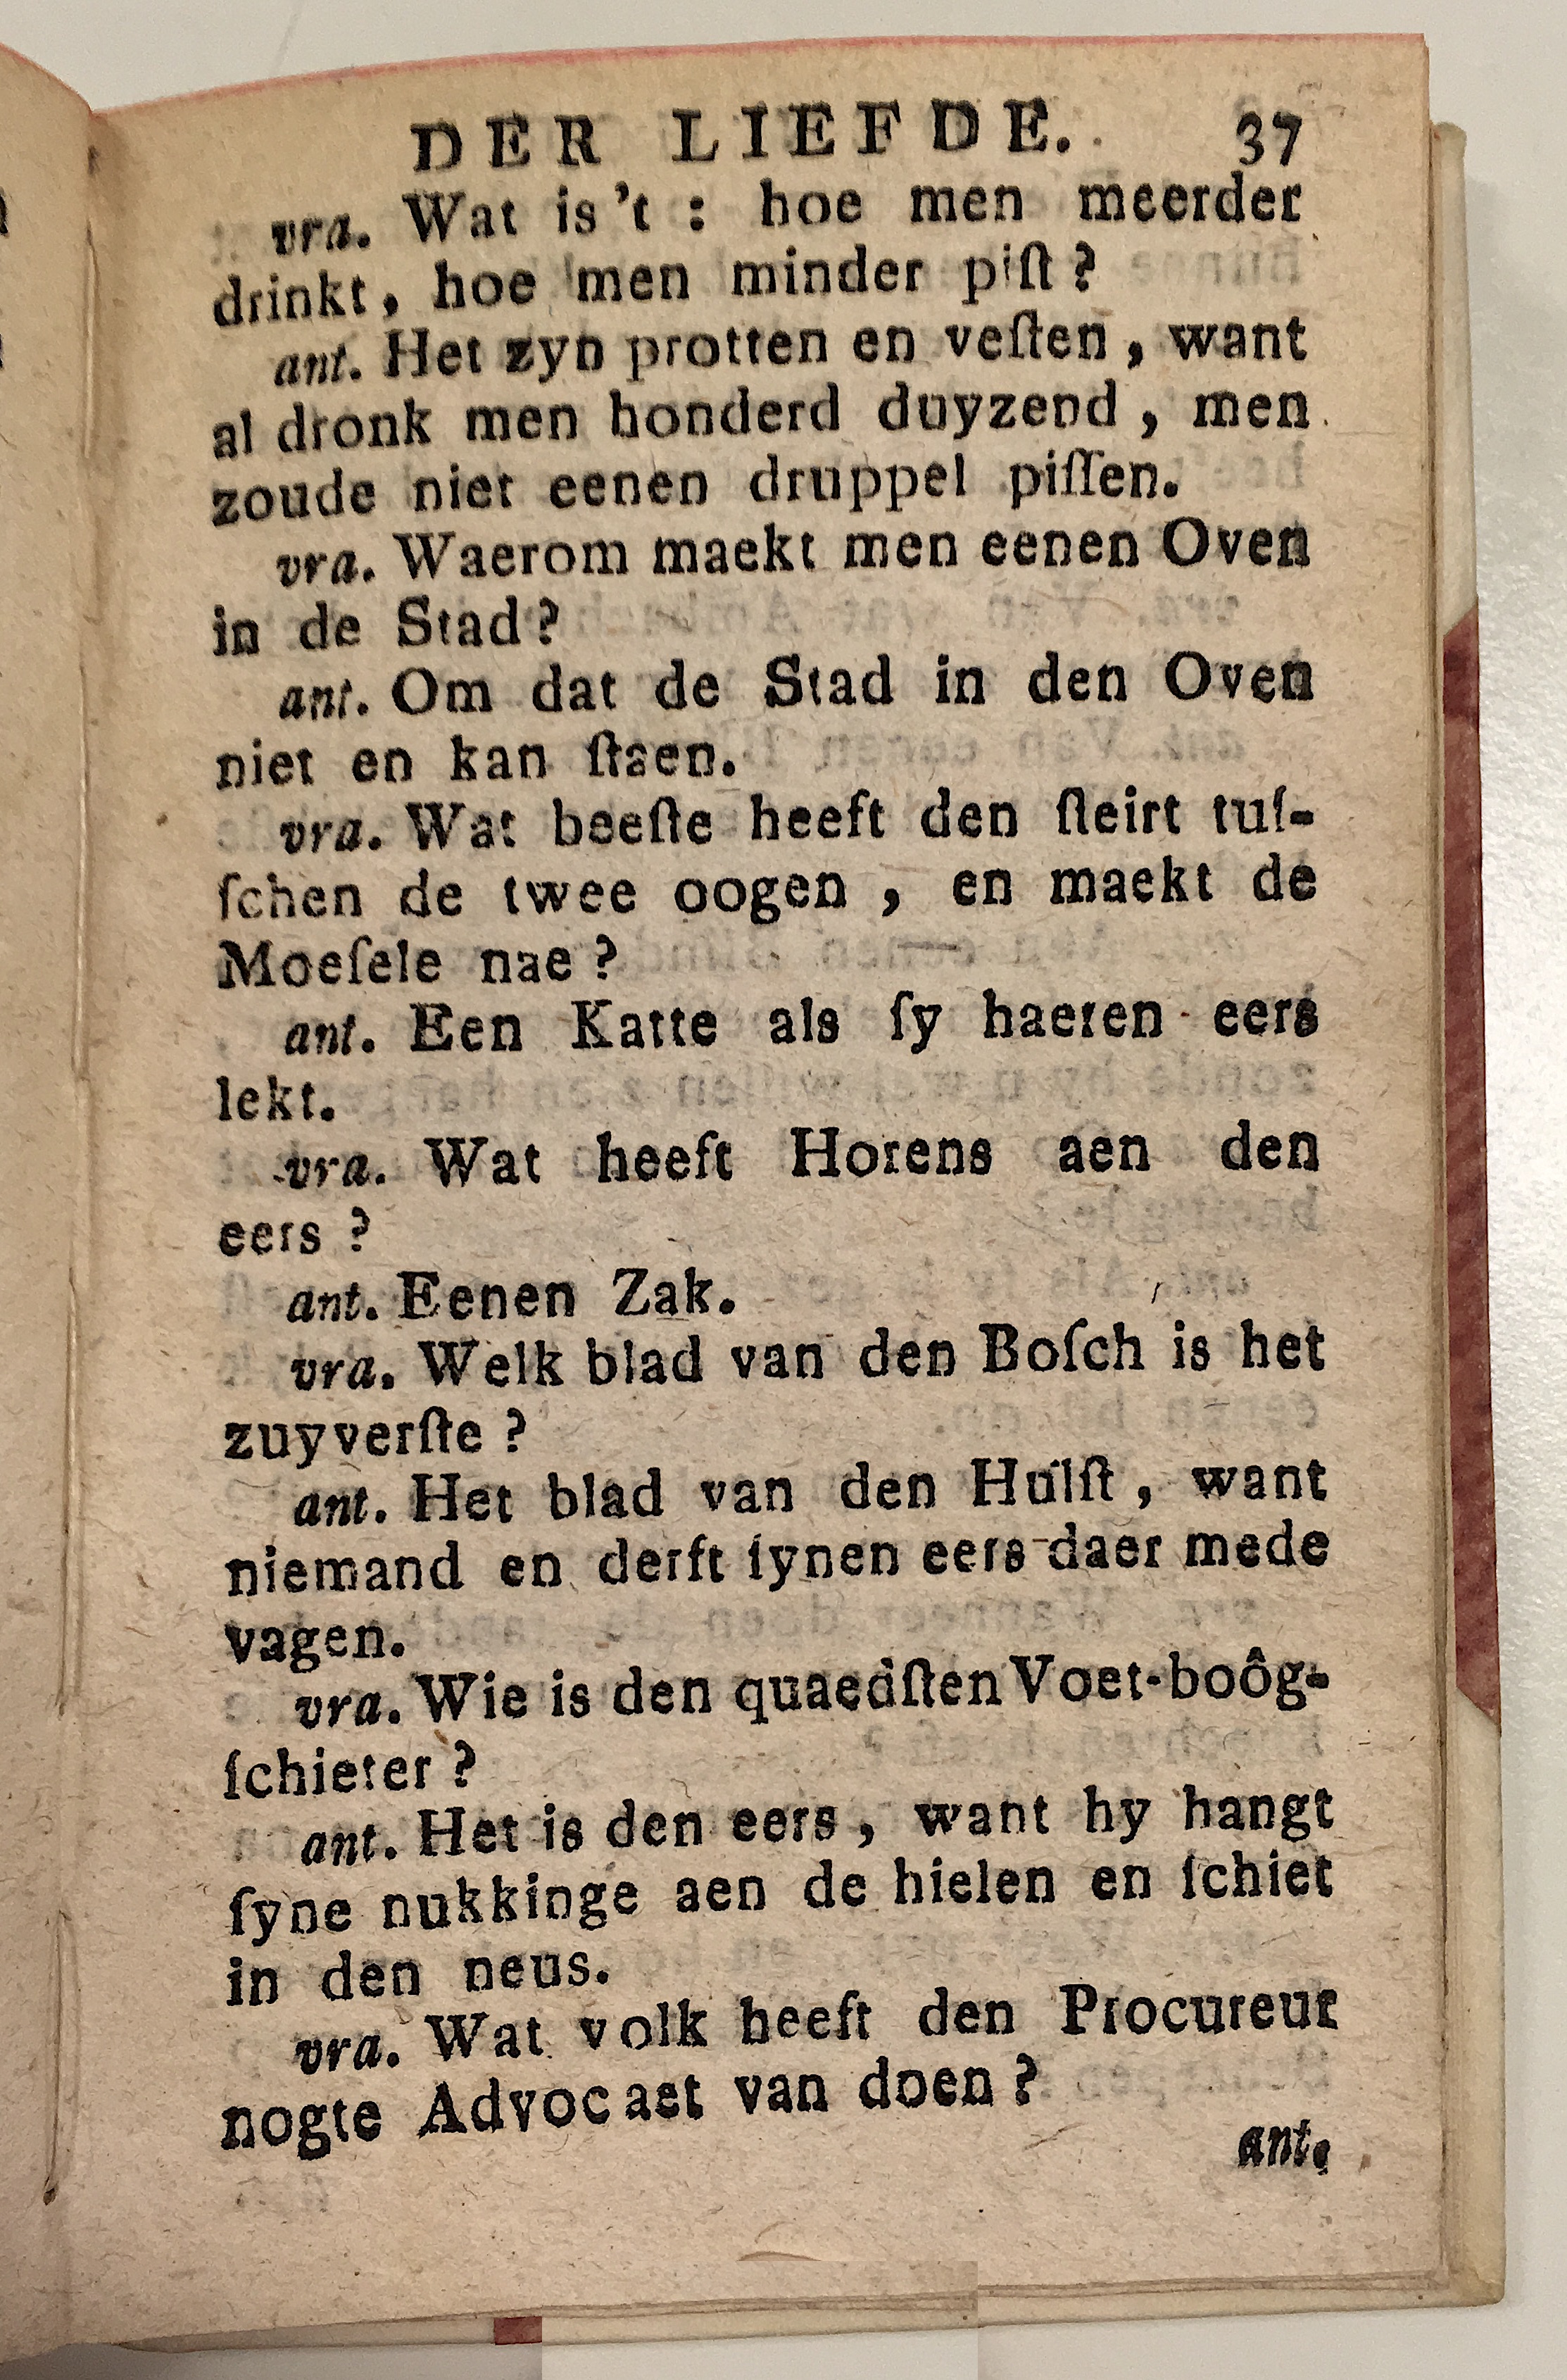 DER LIEFDE. 37
vra. Wat is 't : hoe men meerder
drinkt, hoe men minder piſt?
ant. Het zyn protten en veſten, want
al dronk men honderd duyzend, men
zoude niet eenen druppel piſſen.
vra. Waerom maekt men eenen Oven
in de Stad?
ant. Om dat de Stad in den Oven
niet en kan ſtaen.
vra. Wat beeſte heeft den ſteirt tuſ-
ſchen de twee oogen, en maekt de
Moeſele nae?
ant. Een Katte als ſy haeren eers
lekt.
vra. Wat heeft Horens aen den
eers?
ant. Eenen Zak.
vra. Welk blad van den Boſch is het
zuyverſte?
ant. Het blad van den Hulſt, want
niemand en derft ſynen eers daer mede
vagen.
vra. Wie is den quaedſten Voet-boôg-
ſchieter?
ant. Het is den eers, want hy hangt
ſyne nukkinge aen de hielen en ſchiet
in den neus.
vra. Wat volk heeft den Procureur
nogte Advocaet van doen?
ant.